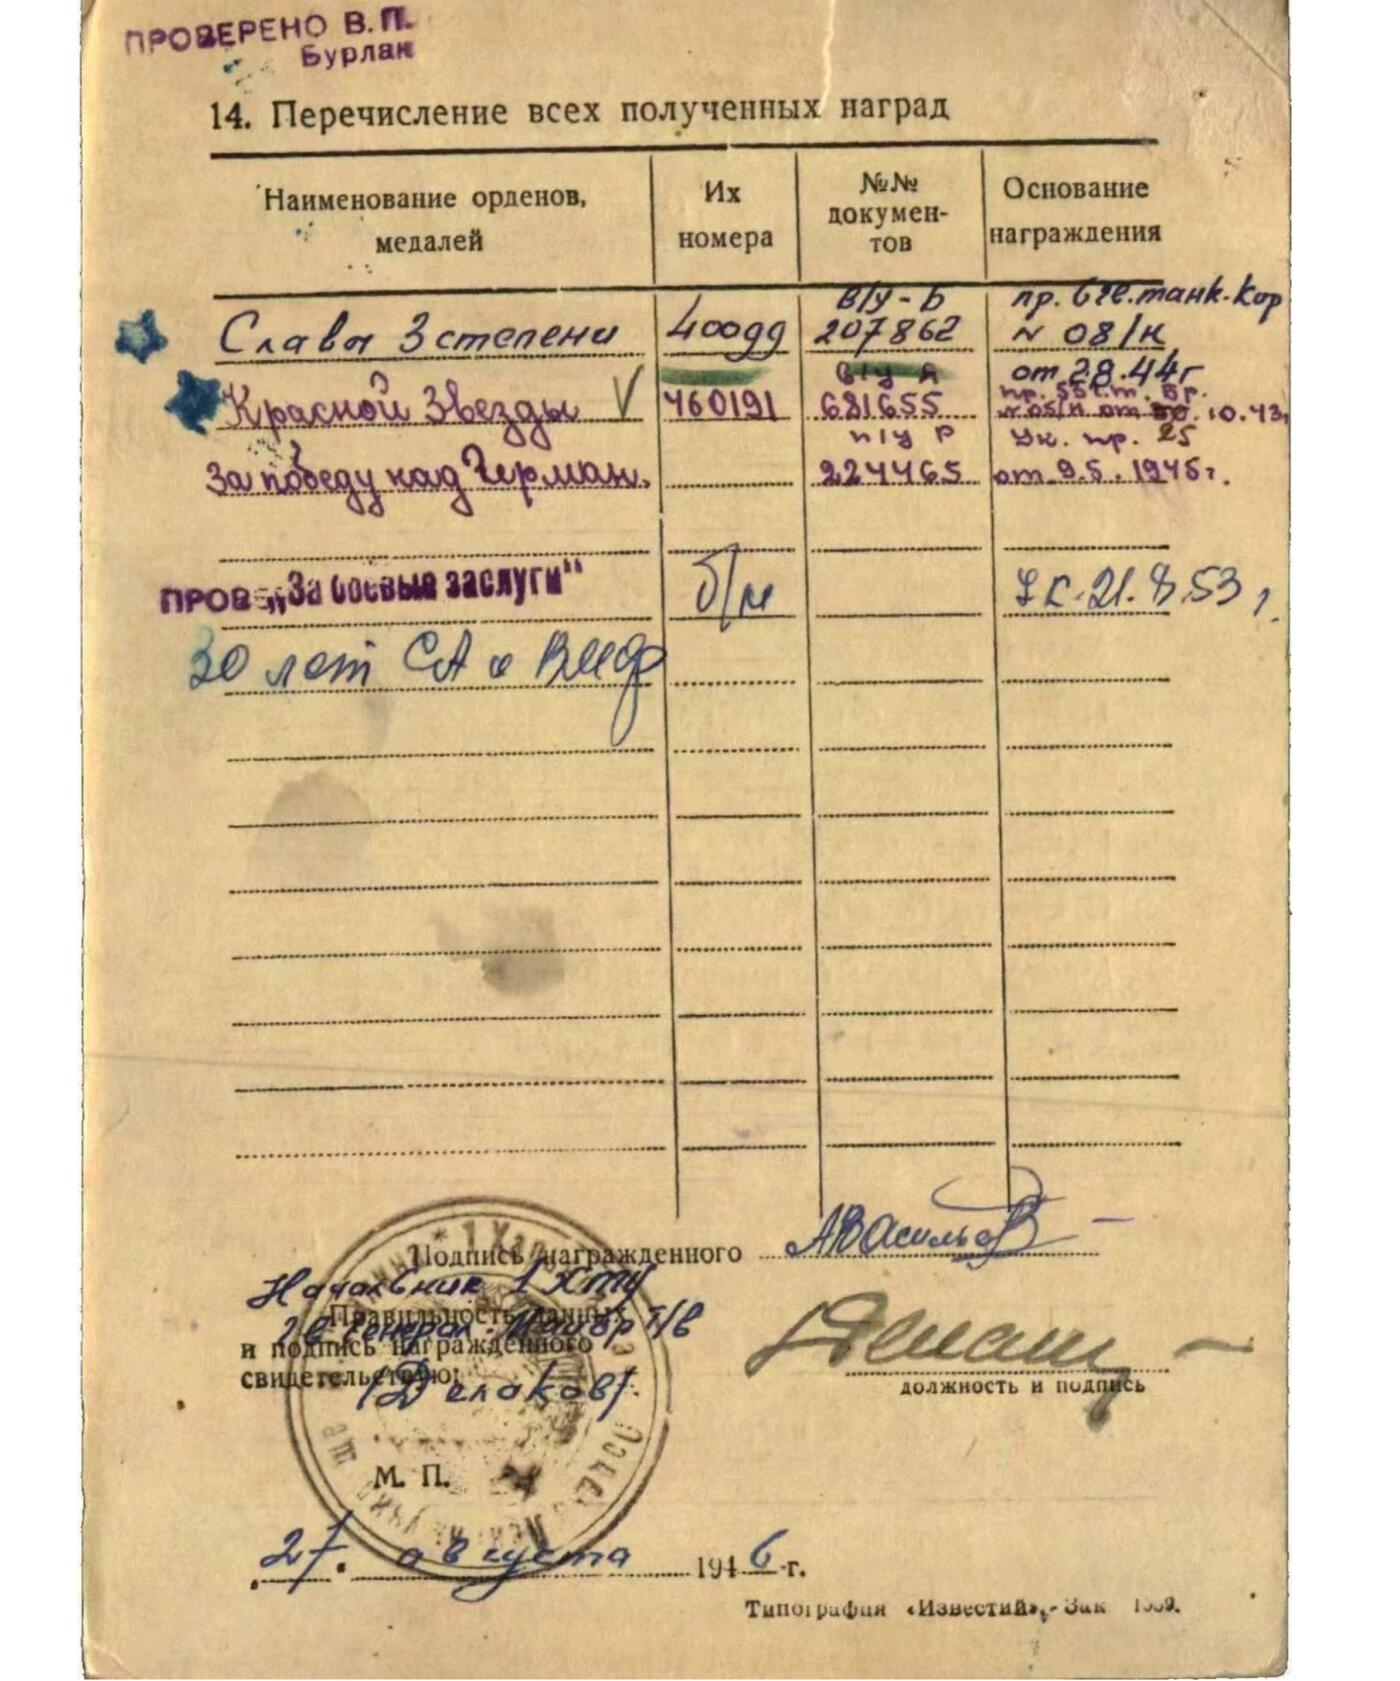 ПРОВЕРЕНО В.П.
Бурлак
14. Перечисление всех полученных наград
Наименование орденов, медалей
Их номера
№№ документов
Основание награждения
Слава 3 степени
40099
в/у-Б 207862
пр. 6 гв. танк. кор
№ 08/н
от 2.8.44г
Красной Звезды V
460191
в/у А
681655
пр. 55 г.т. бр.
№ 05/н от 30.10.43г
За победу над Герман.
п/у Р
224465
Ук. пр. 25
от 9.5.1945г.
ПРОВЕ „За боевые заслуги“
б/н
Ук. 21.8.53 г.
30 лет СА и ВМФ
Подпись награжденного АВасильев
Начальник 1 ХТУ
Правильность данных
гв генерал-майор т/в
и подпись награжденного
свидетельствую:
/Делаков/
должность и подпись
М. П.
27. августа 1946 г.
Типография «Известий». Зак